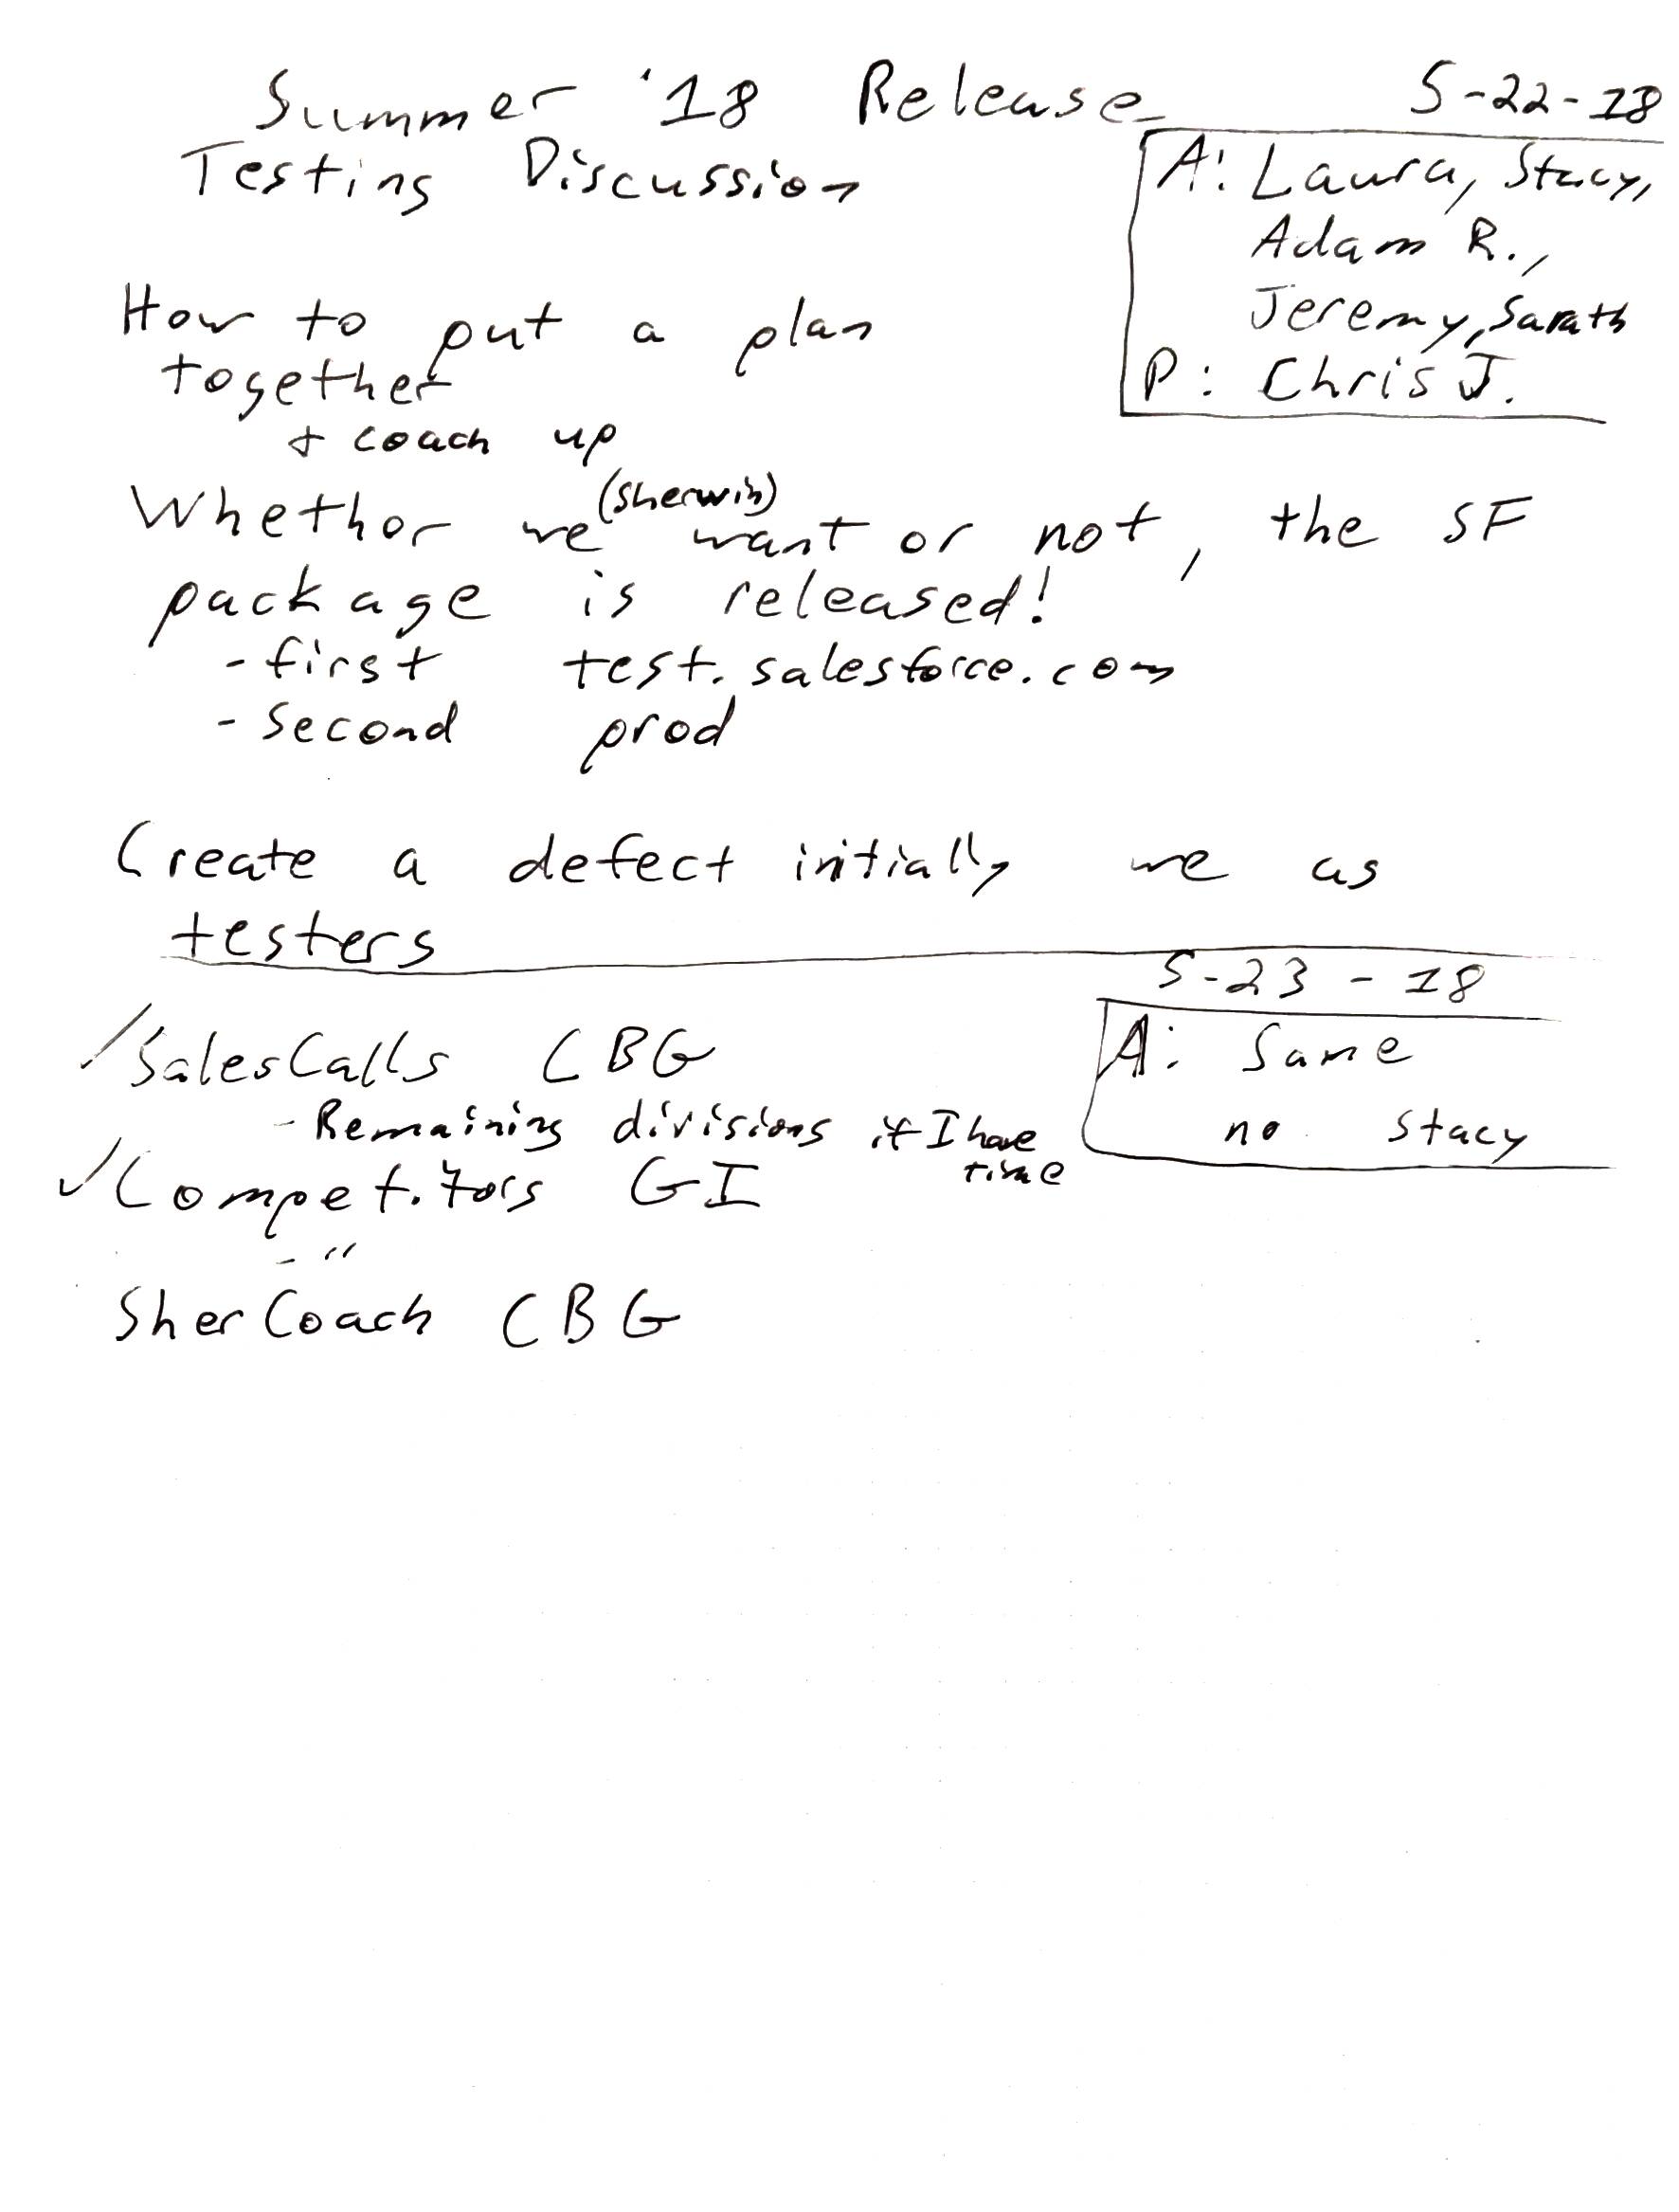 Summer '18 Release
5-22-18
Testing Discussion
A: Laura, Stacy,
Adam R.,
Jeremy, Sarath
P: Chris J.
How to put a plan
together
+ coach up
Whether we (Sherwin) want or not, the SF
package is released!
- first test.salesforce.com
- Second prod
Create a defect initially we as
testers
5-23-18
A: Same
no Stacy
✓SalesCalls CBG
- Remaining divisions if I have
time
✓Competitors GI
- "
SherCoach CBG